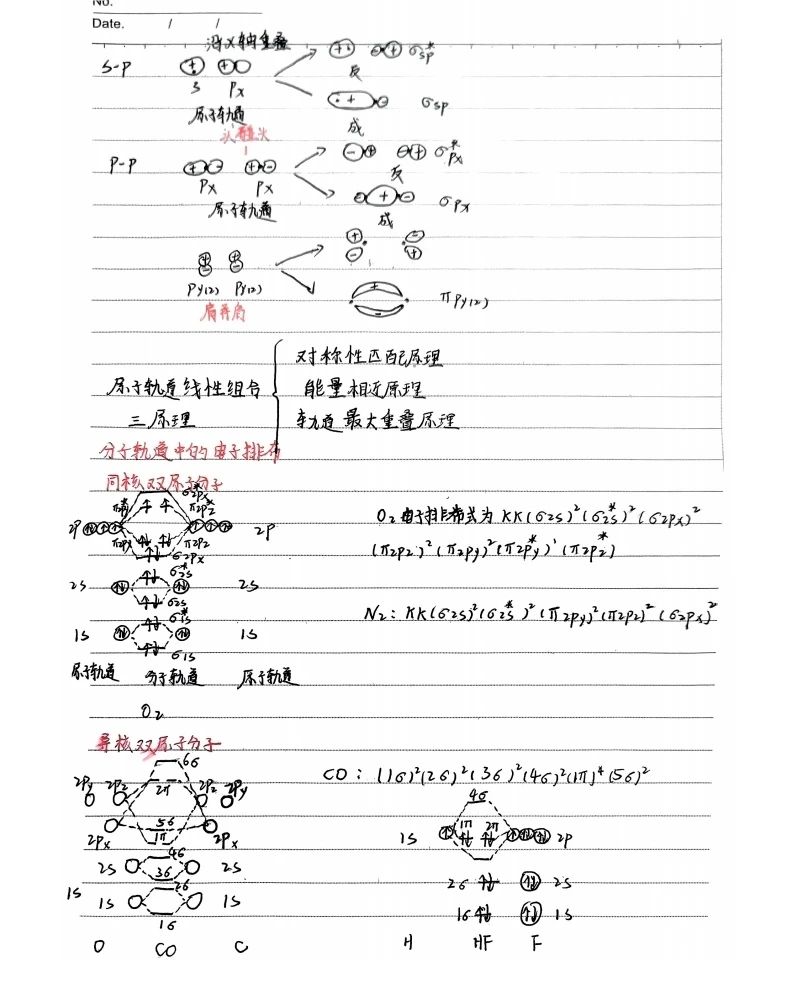 No.
Date. / /
沿X轴重叠
S-P
S Px
原子轨道
反 σ*sp
成 σsp
头碰头
P-P
Px Px
原子轨道
反 σ*px
成 σpx
Py(z) Py(z)
肩并肩
πpy(z)
原子轨道线性组合
三原理
对称性匹配原理
能量相近原理
轨道最大重叠原理
分子轨道中的电子排布
同核双原子分子
σ*2px
π*2pz
2P 2P
π2py π2pz
σ2px
σ*2s
2S 2S
σ2s
σ*1s
1S 1S
σ1s
原子轨道 分子轨道 原子轨道
O2
O2电子排布式为 KK(σ2s)²(σ*2s)²(σ2px)²
(π2pz)²(π2py)²(π2p*y)¹(π2p*z)
N2: KK(σ2s)²(σ*2s)²(π2py)²(π2pz)²(σ2px)²
异核双原子分子
6σ
2Py 2Pz 2π 2Pz 2Py
5σ
2Px 1π 2Px
4σ
2S 3σ 2S
2σ
1S
1S 1S
1σ
O CO C
CO: (1σ)²(2σ)²(3σ)²(4σ)²(1π)⁴(5σ)²
4σ
1S 1π 2π 2P
2σ 2S
1σ 1S
H HF F